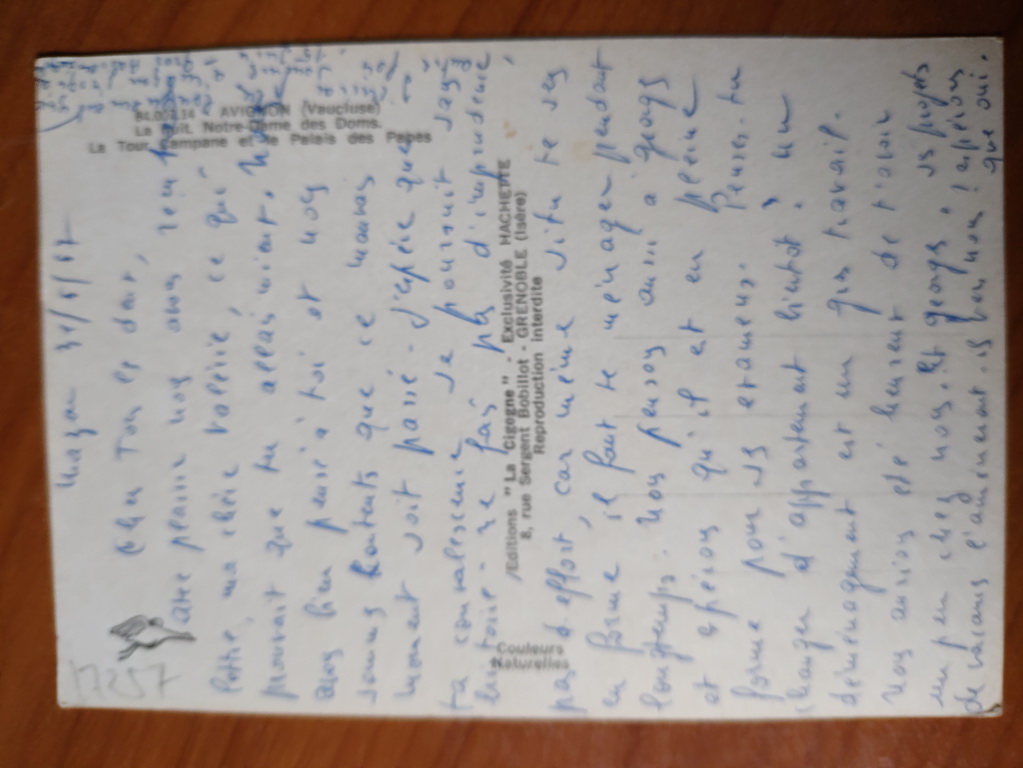 17257
Mazan 31/5/67
Chers Tous les deux,
avec plaisir nous avons reçu
lettre, ma chère Valérie, ce qui
prouvait que tu allais mieux. Nous
avons bien pensé à toi et nous
sommes contents que ce mauvais
moment soit passé - J'espère que
ta convalescence se poursuit sans
histoire - ne fais pas d'imprudence,
pas d'effort, car même si tu te sens
en forme il faut te ménager pendant
longtemps. Nous pensons aussi à Georges
et espérons qu'il est en pleine
forme pour ses examens. Penses-tu
changer d'appartement bientôt ? un
déménagement est un gros travail.
Nous aurions été heureux de t'avoir
un peu chez nous. Et Georges. Les projets
de vacances l'amèneront-ils vers nous ? espérons
que oui.
84.007.14 AVIGNON (Vaucluse)
La Nuit, Notre-Dame des Doms.
La Tour Campane et le Palais des Papes
Editions "La Cigogne" - Exclusivité HACHETTE
8, rue Sergent Bobillot - GRENOBLE (Isère)
Reproduction interdite
Couleurs
Naturelles